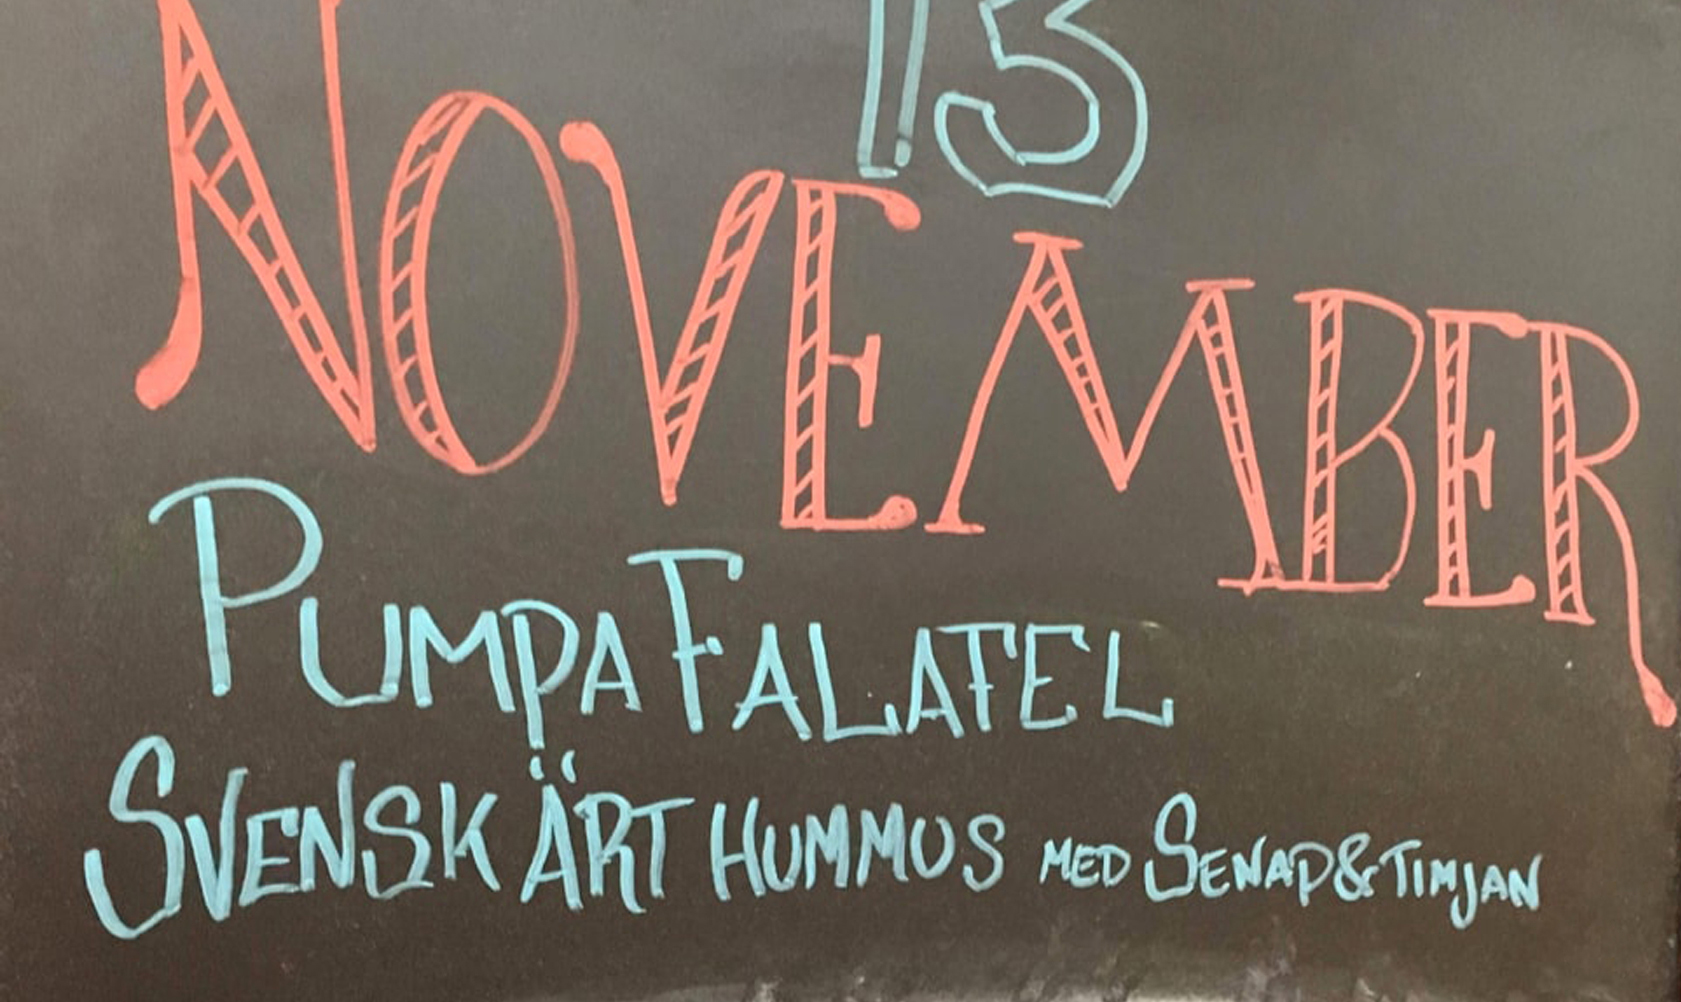 13
NOVEMBER
PUMPA FALAFEL
SVENSK ÄRT HUMMUS MED SENAP & TIMJAN